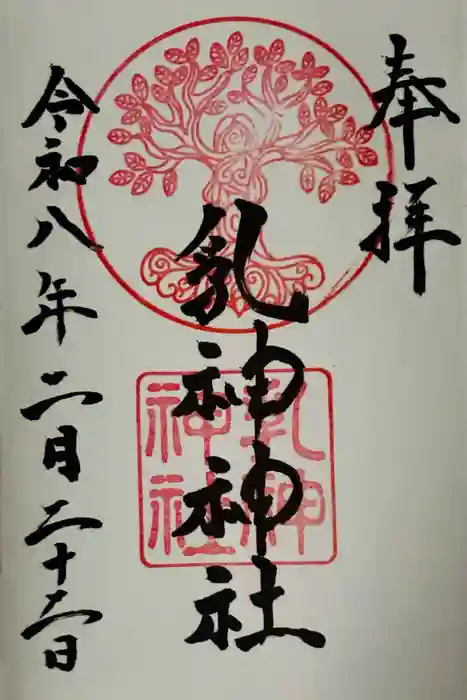 奉拝
乳神神社
令和八年二月二十六日
乳神
神社